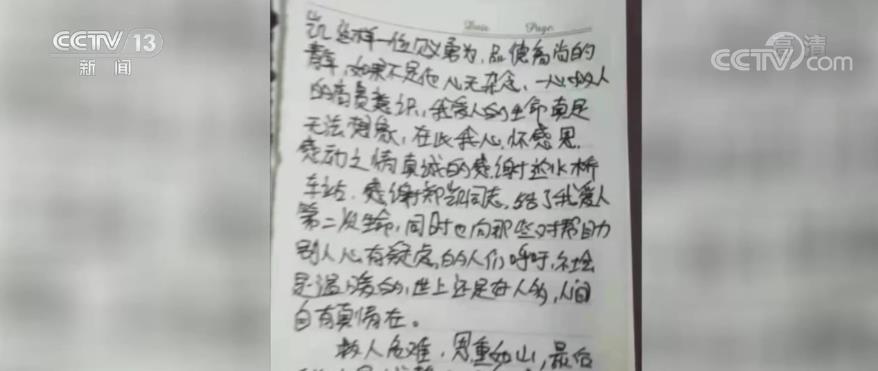 CCTV 13
新闻
高清
CCTV.com
Date Page
凯这样一位见义勇为,品德高尚的
青年,如果不是他心无杂念,一心为人
的高贵意识,我爱人的生命真是
无法想象,在此我心怀感恩
感动之情真诚的感谢 水桥
车站,感谢郑凯同志,给了我爱人
第二次生命,同时也向那些对帮助
别人心有疑虑的人们呼吁,社会
是温暖的,世上还是好人多,人间
自有真情在。
救人危难,恩重如山,最后